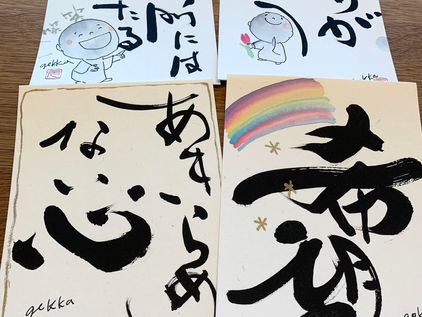 には
たる
gekka
りが
あきらめ
ない心
gekka
希望